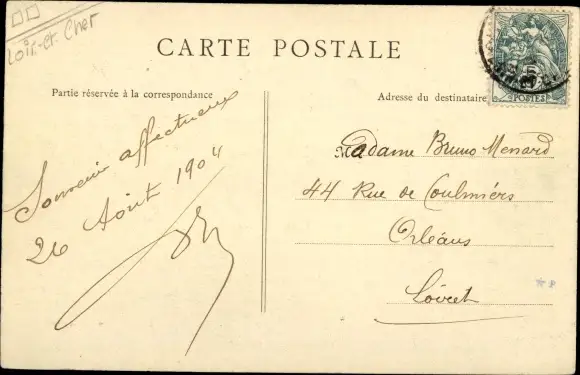 Loir-et-Cher
CARTE POSTALE
Partie réservée à la correspondance
Adresse du destinataire
Souvenir affectueux
26 Août 1904
Madame Bruno Menard
44 Rue de Coulmiers
Orléans
Loiret
POSTES